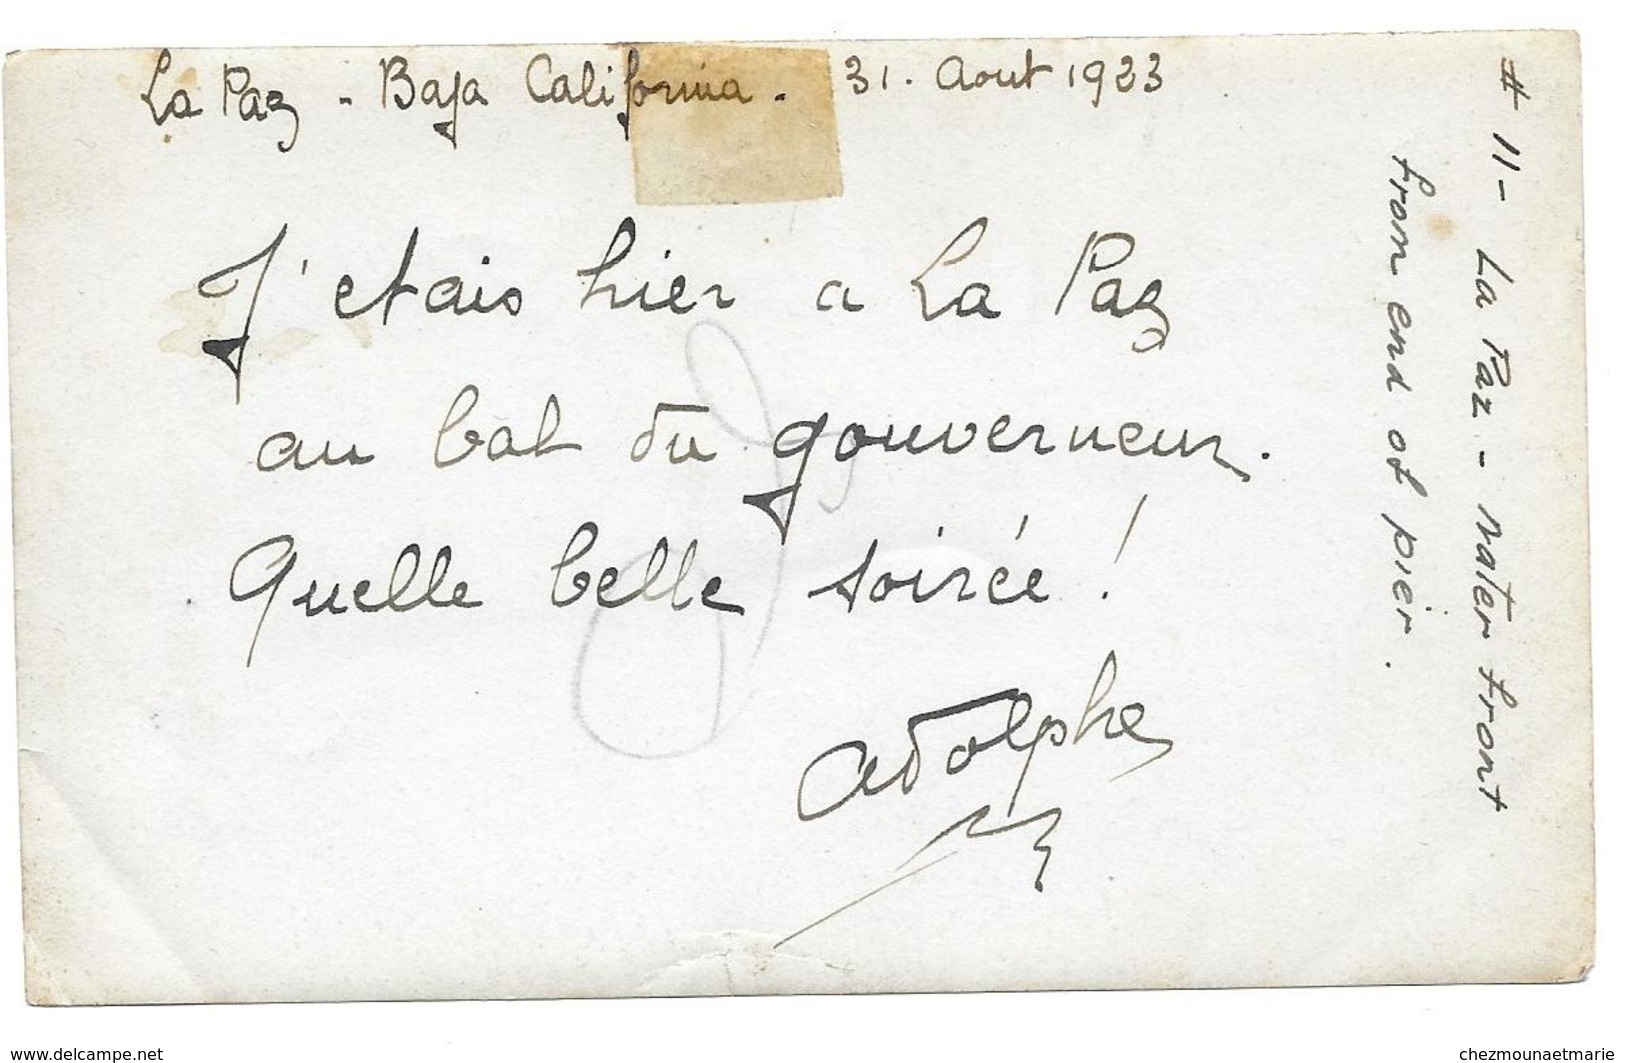 La Paz - Baja California. 31. Aout 1933
J'etais hier a La Paz
au bal du gouverneur.
Quelle belle soirée!
Adolphe
# 11 - La Paz - Water front
from end of pier.
www.delcampe.net
chezmounaetmarie